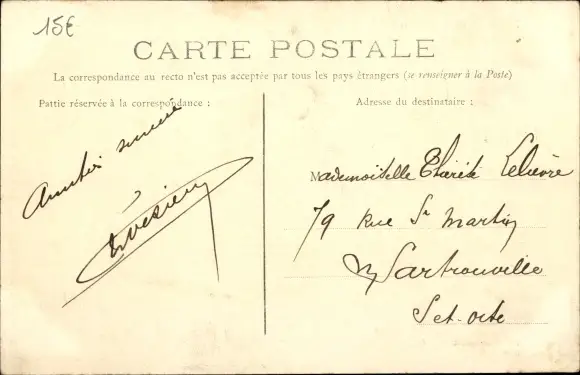 15€
CARTE POSTALE
La correspondance au recto n'est pas acceptée par tous les pays étrangers (se renseigner à la Poste)
Pattie réservée à la correspondance :
Adresse du destinataire :
Mademoiselle Lelièvre
79 Rue St Martin
Sartrouville
Set-oise